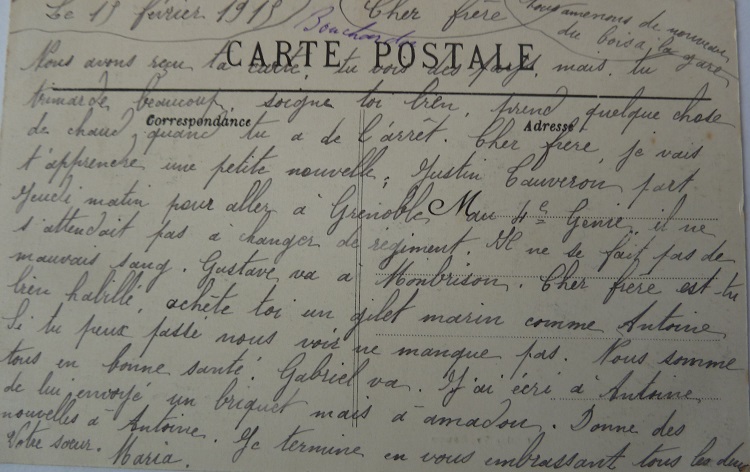 Le 19 février 1915 Cher frère
Nous amenons de nouveau
du bois a la gare
Bouchardo
CARTE POSTALE
Nous avons reçu ta carte, tu vois des pays, mais tu
trimarde beaucoup, soigne toi bien, prend quelque chose
Correspondance
Adresse
de chaud quand tu a de l'arrêt. Cher frère, je vais
t'apprendre une petite nouvelle; Justin Tauveron part
Jeudi matin pour aller à Grenoble au 4e Génie, il ne
M
s'attendait pas à changer de régiment. Il ne se fait pas de
mauvais sang. Gustave va a Monbrison. Cher frère est-tu
bien habillé, achète toi un gilet marin comme Antoine
Si tu peux passe nous voir ne manque pas. Nous somme
tous en bonne santé. Gabriel va. J'ai écri à Antoine
de lui envoyé un briquet mais à amadou. Donne des
nouvelles à Antoine. Je termine en vous embrassant tous les deux
Votre sœur. Maria.